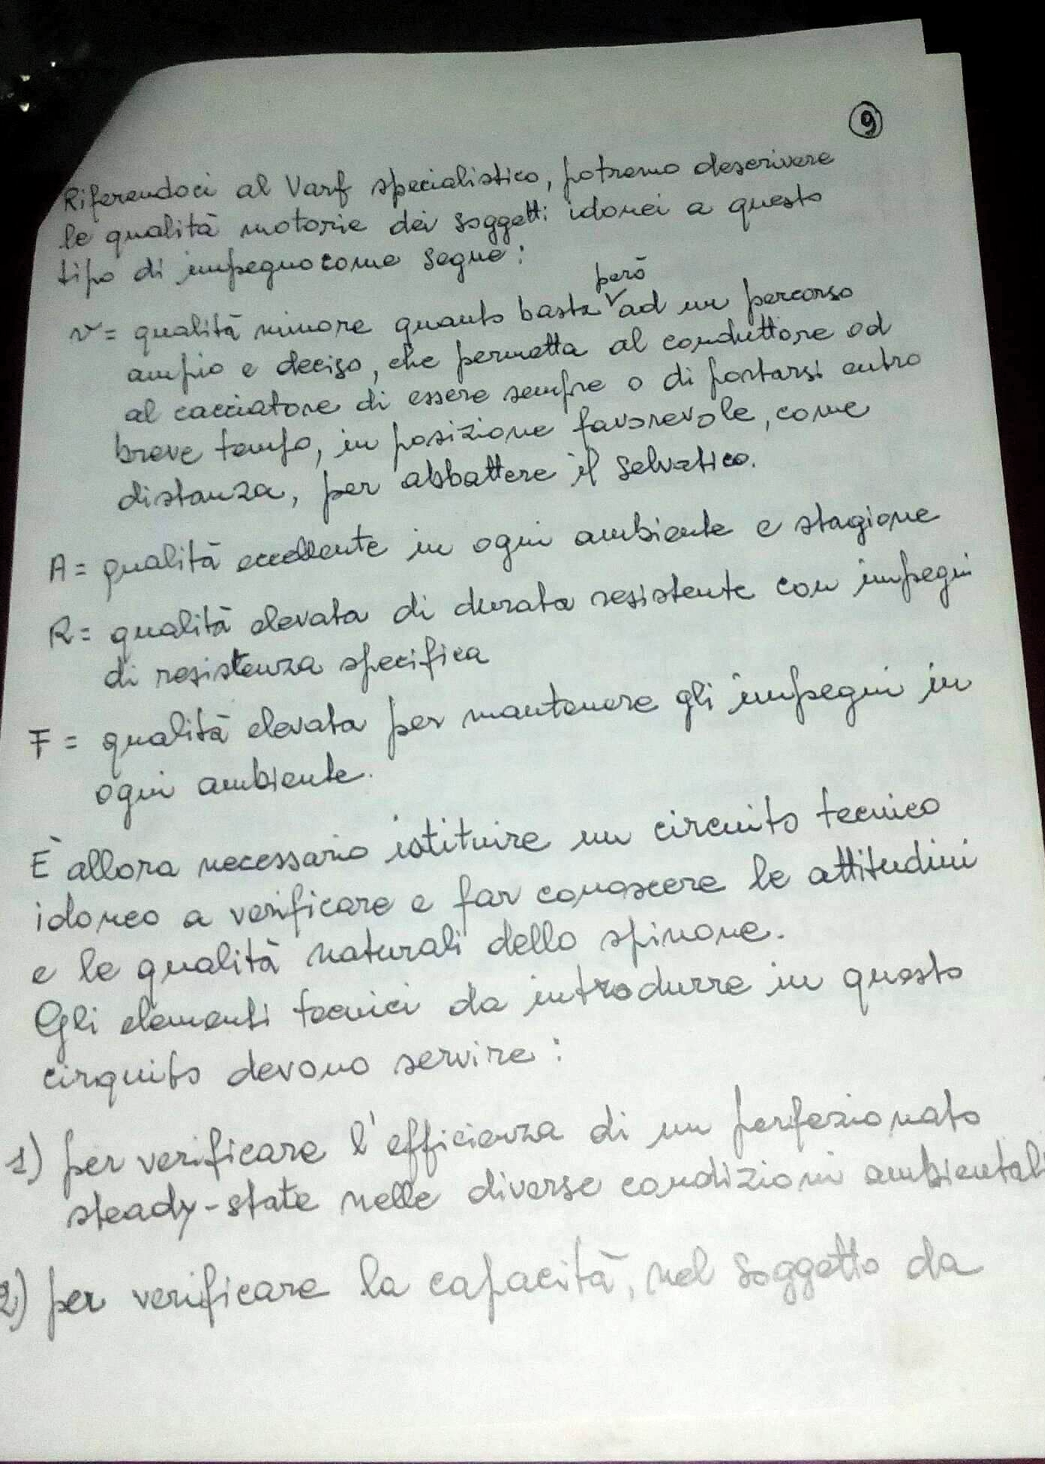 9
Riferendoci al Varf specialistico, potremo descrivere
le qualità motorie dei soggetti idonei a questo
tipo di impegno come segue:
però
V = qualità minore quanto basta ad un percorso
ampio e deciso, che permetta al conduttore od
al cacciatore di essere sempre o di portarsi entro
breve tempo, in posizione favorevole, come
distanza, per abbattere il selvatico.
A = qualità eccellente in ogni ambiente e stagione
R = qualità elevata di durata resistente con impegni
di resistenza specifica
F = qualità elevata per mantenere gli impegni in
ogni ambiente.
È allora necessario istituire un circuito tecnico
idoneo a verificare e far conoscere le attitudini
e le qualità naturali dello spinone.
Gli elementi tecnici da introdurre in questo
cirquito devono servire:
1) per verificare l'efficienza di un perfezionato
steady-state nelle diverse condizioni ambientali
2) per verificare la capacità, nel soggetto da